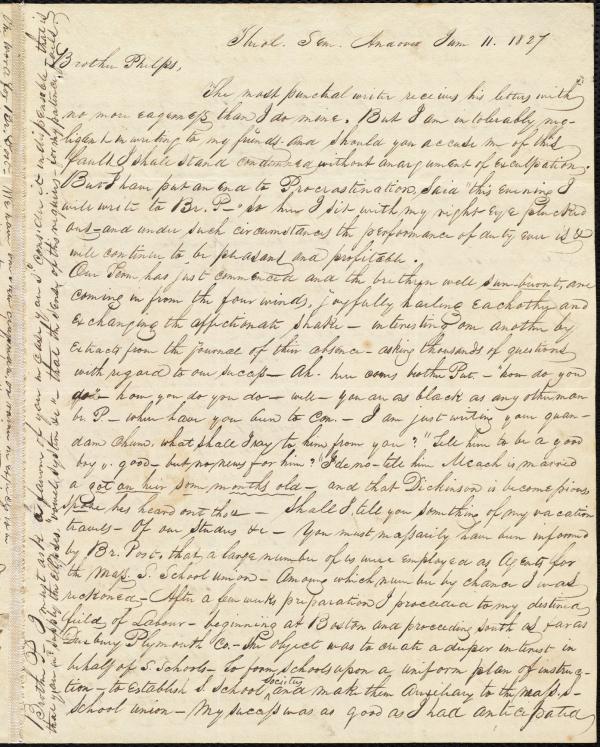 Theol. Sem. Andover Jun 11. 1827
Brother Phelps,
The most punctual writer receives his letters with
no more eagerness than I do mine. But I am intolerably neg-
ligent in writing to my friends and should you accuse me of this
fault I shall stand condemned without an argument of exculpation.
But I have put an End to Procrastination, Said "this evening I
will write to Br. P–" so here I sit with my right Eye plucked
out – and under such circumstances the performance of duty ever is &
will continue to be pleasant and profitable.
Our Term has just commenced and the brethren well sun-burnt, are
coming in from the four winds, joyfully hailing Eachother and
Exchanging the affectionate shake – interesting one another by
Extracts from the journal of their absence – asking thousands of questions
with regard to our success – Ah. here comes brother Put. – "how do you
do" – how you do you do – well – you are as black as any other man
br. P – where have you been to Con. – I am just writing your quon-
dam Chum. what shall I say to him from you?" "Tell him to be a good
boy v. good – but no news for him? "I do no – tell him Meach is married
& got an heir some months old – and that Dickinson is become pious
– Shall I tell you something of my vacation
travels – Of our Studies &c – You must necessarily have been informed
by Br. Post, that a large number of us were employed as Agents for
the Mass. S. School Union – Among which number by chance I was
reckoned – After a few weeks preparation I proceeded to my destined
field of Labour – beginning at Boston and proceeding South as far as
Duxbury Plymouth Co. – The object was to create a deeper interest in
behalf of S. Schools – to form Schools upon a uniform plan of instruc-
tion – to Establish S. School societies and make them Auxiliary to the Mass. S.
School Union – My success was as good as I had anticipated
Brother P. I must ask a favor of you in case you'd consider it indispensable – that is
that you will supply the ellipses